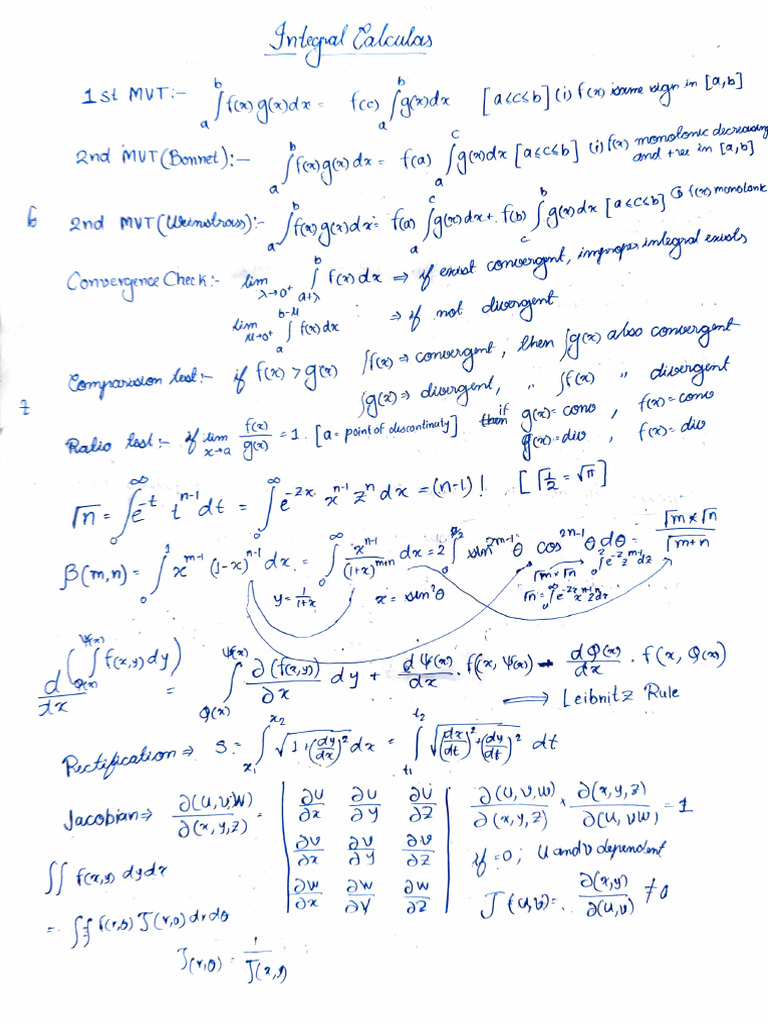 Integral Calculas
1st MVT:- ∫_a^b f(x) g(x) dx = f(c) ∫_a^b g(x) dx [a≤c≤b] (i) f(x) is same sign in [a,b]
2nd MVT (Bonnet):- ∫_a^b f(x) g(x) dx = f(a) ∫_a^c g(x) dx [a≤c≤b] (i) f(x) monotonic decreasing and +ve in [a,b]
6 2nd MVT (Weinstrass):- ∫_a^b f(x) g(x) dx = f(a) ∫_a^c g(x) dx + f(b) ∫_c^b g(x) dx [a≤c≤b] (i) f(x) monotonic
Convergence Check:- lim_{λ→0⁺} ∫_{a+λ}^b f(x) dx ⇒ if exist convergent, improper integral exists
lim_{μ→0⁺} ∫_a^{b-μ} f(x) dx ⇒ if not divergent
Comparision test:- if f(x) > g(x) ∫f(x) ⇒ convergent, then ∫g(x) also convergent
∫g(x) ⇒ divergent, " ∫f(x) " divergent
7
Ratio test:- if lim_{x→a} f(x)/g(x) = 1. [a = point of discontinuty] then if g(x) = conv, f(x) = conv
g(x) = div, f(x) = div
Γn = ∫_0^∞ e^{-t} t^{n-1} dt = ∫_0^∞ e^{-zx} x^{n-1} z^n dx = (n-1)! [Γ1/2 = √π]
β(m,n) = ∫_0^1 x^{m-1} (1-x)^{n-1} dx = ∫_0^∞ x^{n-1}/(1+x)^{m+n} dx = 2 ∫_0^{π/2} sin^{2m-1} θ cos^{2n-1} θ dθ = Γm × Γn / Γm+n
y = 1/(1+x) x = sin²θ Γm × Γn → ∫ e^{-z} z^{m-1} dz
Γn = ∫_0^∞ e^{-zx} x^{n-1} z^n dx
d/dx (∫_{φ(x)}^{ψ(x)} f(x,y) dy) = ∫_{φ(x)}^{ψ(x)} ∂(f(x,y))/∂x dy + dψ(x)/dx . f(x, ψ(x)) - dφ(x)/dx . f(x, φ(x))
⟹ Leibnitz Rule
Rectification ⇒ S = ∫_{x₁}^{x₂} √(1+(dy/dx)²) dx = ∫_{t₁}^{t₂} √((dx/dt)²+(dy/dt)²) dt
Jacobian ⇒ ∂(u,v,w)/∂(x,y,z) = | ∂u/∂x ∂u/∂y ∂u/∂z | ∂(u,v,w)/∂(x,y,z) × ∂(x,y,z)/∂(u,v,w) = 1
| ∂v/∂x ∂v/∂y ∂v/∂z | if = 0; u and v dependent
| ∂w/∂x ∂w/∂y ∂w/∂z | J(u,v) = ∂(x,y)/∂(u,v) ≠ 0
∬ f(x,y) dy dx
= ∬ f(r,θ) J(r,θ) dr dθ
J(r,θ) = 1/J(x,y)